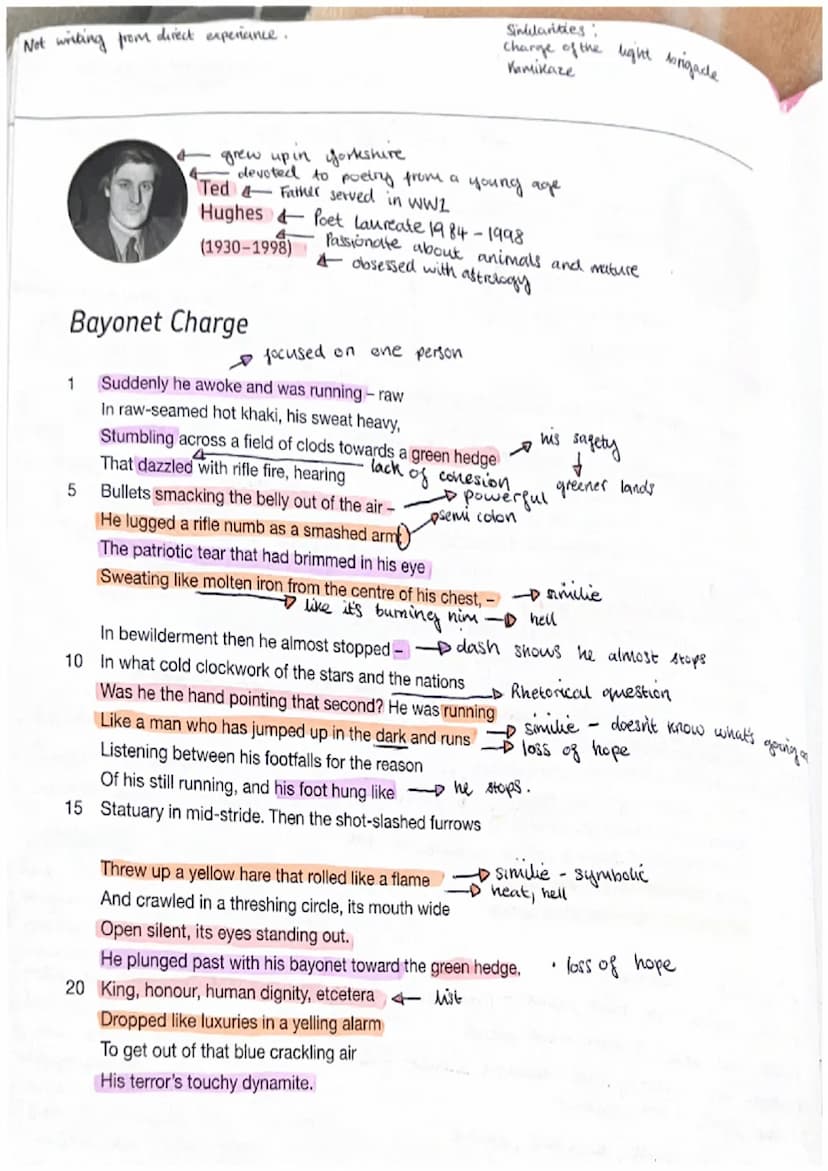 Not writing from direct experience.
Similarities:
Charge of the light brigade
Kamikaze
grew up in Yorkshire
devoted to poetry from a young age
Ted
Father served in WW1
Hughes
Poet Laureate 1984-1998
(1930–1998)
Passionate about animals and nature
obsessed with astrology
Bayonet Charge
focused on one person
1 Suddenly he awoke and was running – raw
In raw-seamed hot khaki, his sweat heavy,
his safety
Stumbling across a field of clods towards a green hedge
That dazzled with rifle fire, hearing
lack of cohesion
greener lands
5 Bullets smacking the belly out of the air –
powerful
semi colon
He lugged a rifle numb as a smashed arm;
The patriotic tear that had brimmed in his eye
Sweating like molten iron from the centre of his chest, –
similie
like it's burning him
hell
In bewilderment then he almost stopped –
dash shows he almost stops
10 In what cold clockwork of the stars and the nations
Rhetorical question
Was he the hand pointing that second? He was running
Like a man who has jumped up in the dark and runs
similie - doesn't know what's going
loss of hope
Listening between his footfalls for the reason
Of his still running, and his foot hung like
he stops.
15 Statuary in mid-stride. Then the shot-slashed furrows
Threw up a yellow hare that rolled like a flame
similie - symbolic
heat, hell
And crawled in a threshing circle, its mouth wide
Open silent, its eyes standing out.
He plunged past with his bayonet toward the green hedge,
• loss of hope
20 King, honour, human dignity, etcetera
list
Dropped like luxuries in a yelling alarm
To get out of that blue crackling air
His terror's touchy dynamite.